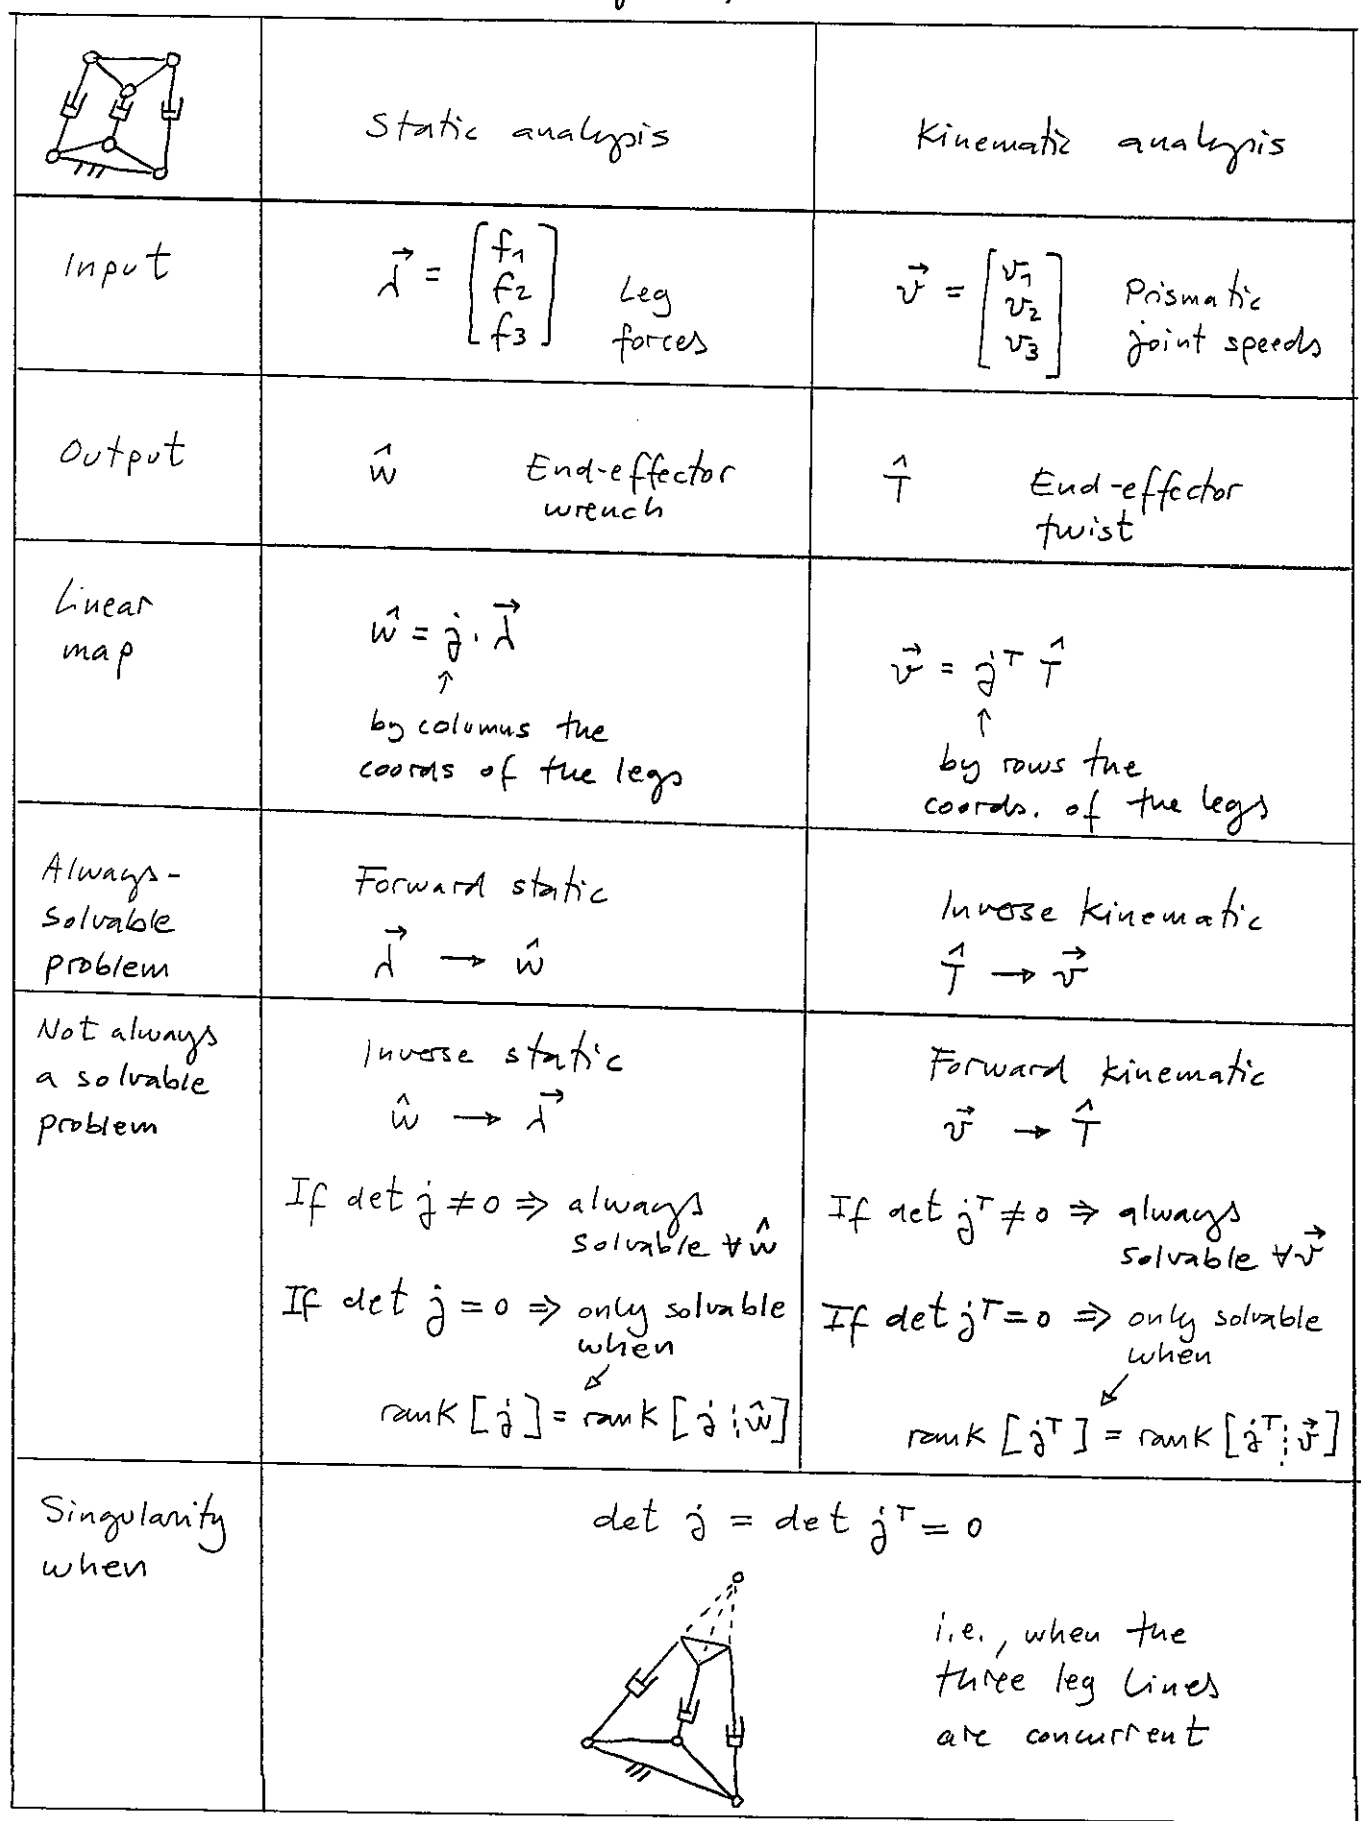 Static analysis
Kinematic analysis
Input
λ⃗ = [f1 f2 f3] Leg
forces
v⃗ = [v1 v2 v3] Prismatic
joint speeds
Output
ŵ End-effector
wrench
T̂ End-effector
twist
Linear
map
ŵ = j · λ⃗
↑
by columns the
coords of the legs
v⃗ = jᵀ T̂
↑
by rows the
coords. of the legs
Always-
solvable
problem
Forward static
λ⃗ → ŵ
Inverse kinematic
T̂ → v⃗
Not always
a solvable
problem
Inverse static
ŵ → λ⃗
If det j ≠ 0 ⇒ always
solvable ∀ŵ
If det j = 0 ⇒ only solvable
when
rank [j] = rank [j ¦ ŵ]
Forward kinematic
v⃗ → T̂
If det jᵀ ≠ 0 ⇒ always
solvable ∀v⃗
If det jᵀ = 0 ⇒ only solvable
when
rank [jᵀ] = rank [jᵀ ¦ v⃗]
Singularity
when
det j = det jᵀ = 0
i.e., when the
three leg lines
are concurrent